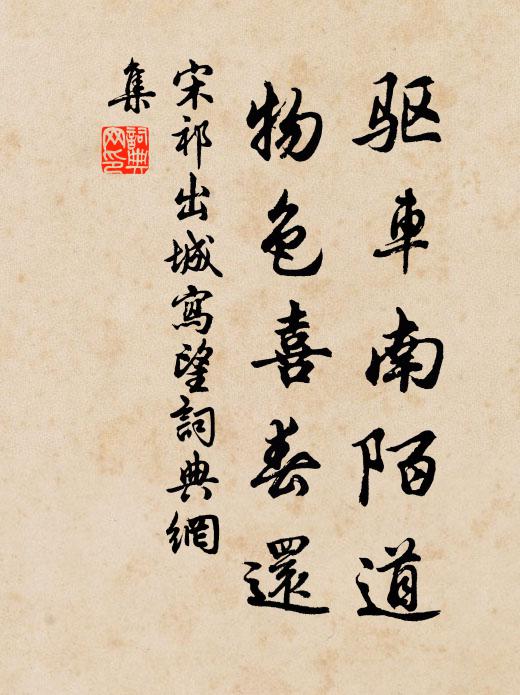 驱車南陌道
物色喜春還
宋祁出城寫望詞典網
集
詞典
网印